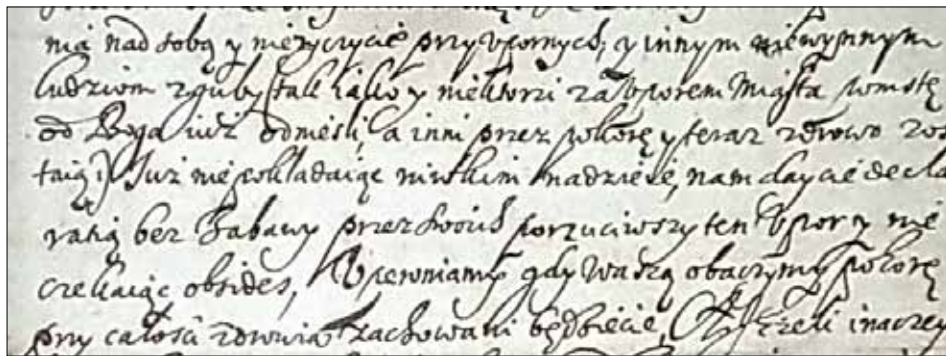 nią nad sobą y nieżyczycie przy vpornych, y innym niewynnym
ludziom zguby (tak iako y niektorzi za vporem Miasta pomstę
od Boga iuż odnieśli, a inni przez pokorę y teraz zdrowo zos
taią) Już niepokładaiąc w nikim nadzieię, nam daycie decla
ratią bez Zabawy przez swoich porzuciwszy ten Vpor y nie
czekaiąc obsides, Vpewniamy gdy waszą obaczymy pokorę
przy całości zdrowia zachowani będziecie, A Jeżeli inaczey